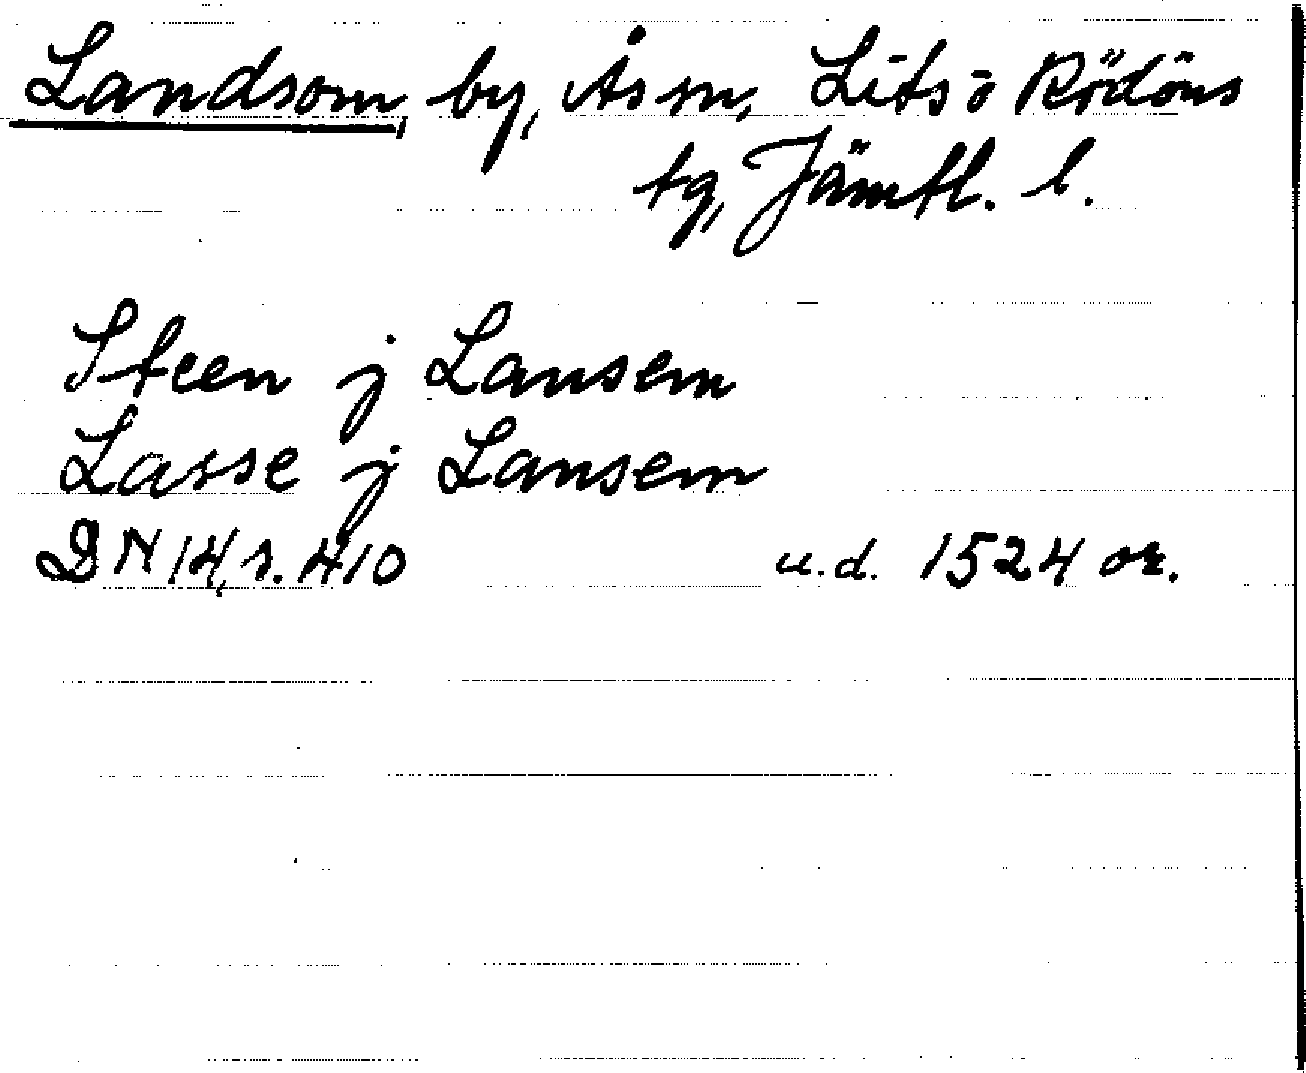 Landsom, by, Ås sn, Lits o Rödöns
tg, Jämtl. l.
Steen j Lansem
Lasse j Lansem
DN 14, s. 410 u.d. 1524 or.